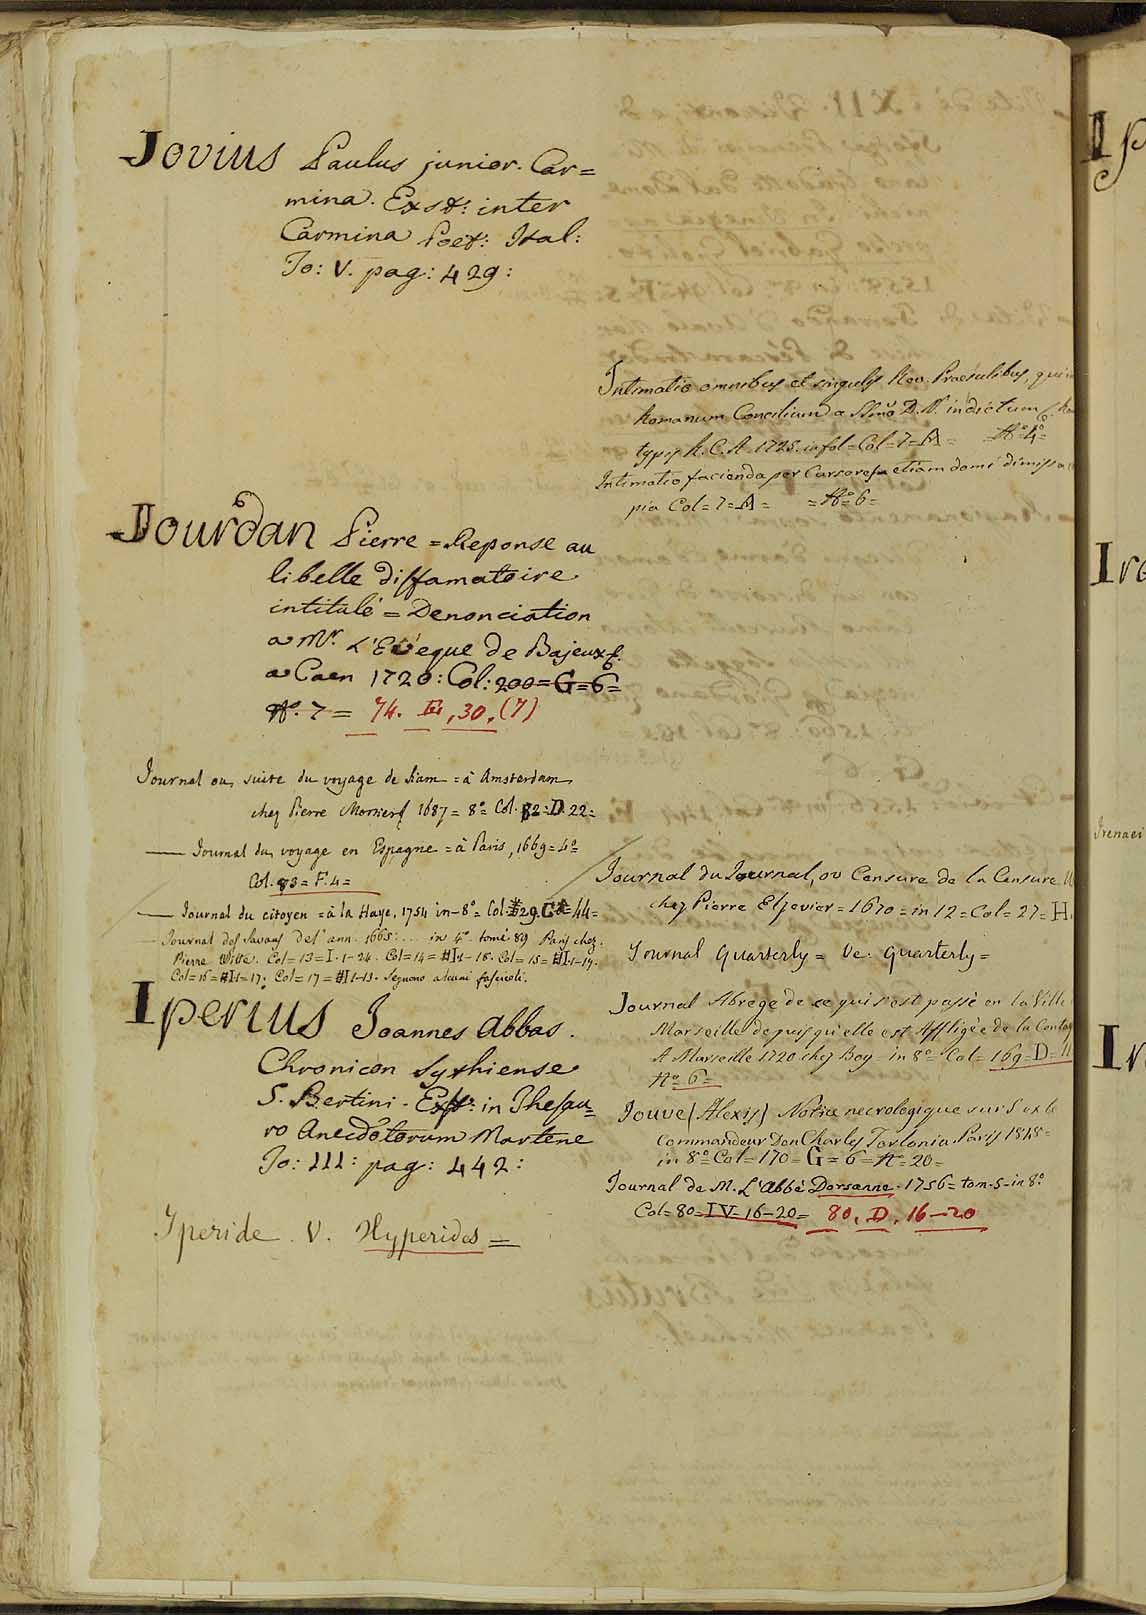 Jovius Paulus junior. Car=
mina. Exst: inter
Carmina Poet: Ital:
To: V. pag: 429:
Jourdan Pierre = Reponse au
libelle diffamatoire
intitulé = Denonciation
a Mr. L'Eveque de Bajeux
a Caen 1720: Col: 200=G=6=
No. 7 = 74. E, 30, (7)
Journal ou suite du voyage de Siam = à Amsterdam
chez Pierre Mortier 1687 = 8º Col. 82=D 22=
— Journal du voyage en Espagne = à Paris, 1669=4º=
Col. 83=F.4=
— Journal du citoyen = à la Haye, 1754 in-8º= Col 29 G =44=
Journal des Savans des ann. 1665: ... in 4º tome 89 Paris chez
Pierre Witte. Col=13=I.1-24. Col=14=I.1-18. Col=15=I.1-19.
Col=16=I.1=17; Col=17=I.1-13. Seguono alcuni fascicoli.
Iperius Joannes Abbas.
Chronicon Sythiense
S. Bertini. Exst: in Thesau=
ro Anecdotorum Martene
To: III: pag: 442:
Iperide. V. Hyperides =
Intimatio omnibus et singulis Rev. Praesulibus, qui
Romanum Concilium a Ssmo D. N. indictum
typis R. C. A. 1725. in fol=Col=7=A= Nº 4º=
Intimatio facienda per Cursores etiam domi dimissa
pia Col=7=A= =Nº 6=
Journal du Journal, ou Censure de la Censure
chez Pierre Elzevier=1670=in 12=Col=27=H.
Journal Quarterly = Ve. Quarterly=
Journal Abregé de ce qui s'est passé en la Ville
Marseille depuis qu'elle est Affligée de la Contag
A Marseille 1720 chez Boy in 8º Col=169=D=11
Nº 6=
Jouve (Alexis) Notice necrologique sur S. ex le
Commandeur Don Charles Torlonia. Paris 1848=
in 8º= Col=170=G=6=Nº=20=
Journal de M. L'Abbé Dorsanne. 1756=tom.5-in 8º
Col=80=IV=16-20= 80, D, 16-20
Ip
Ire
Irenaei
Ir